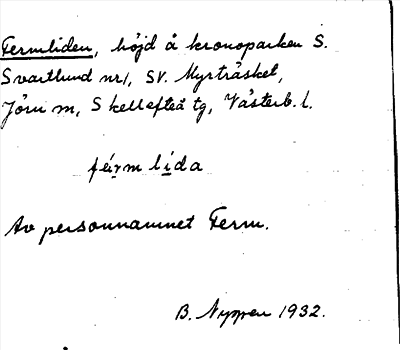 Fermliden, höjd å kronoparken S.
Svartlund nr 1, SV. Myrträsket,
Jörn m, Skellefteå tg, Västerb. l.
færm lida
Av personnamnet Ferm.
B. Nyman 1932.